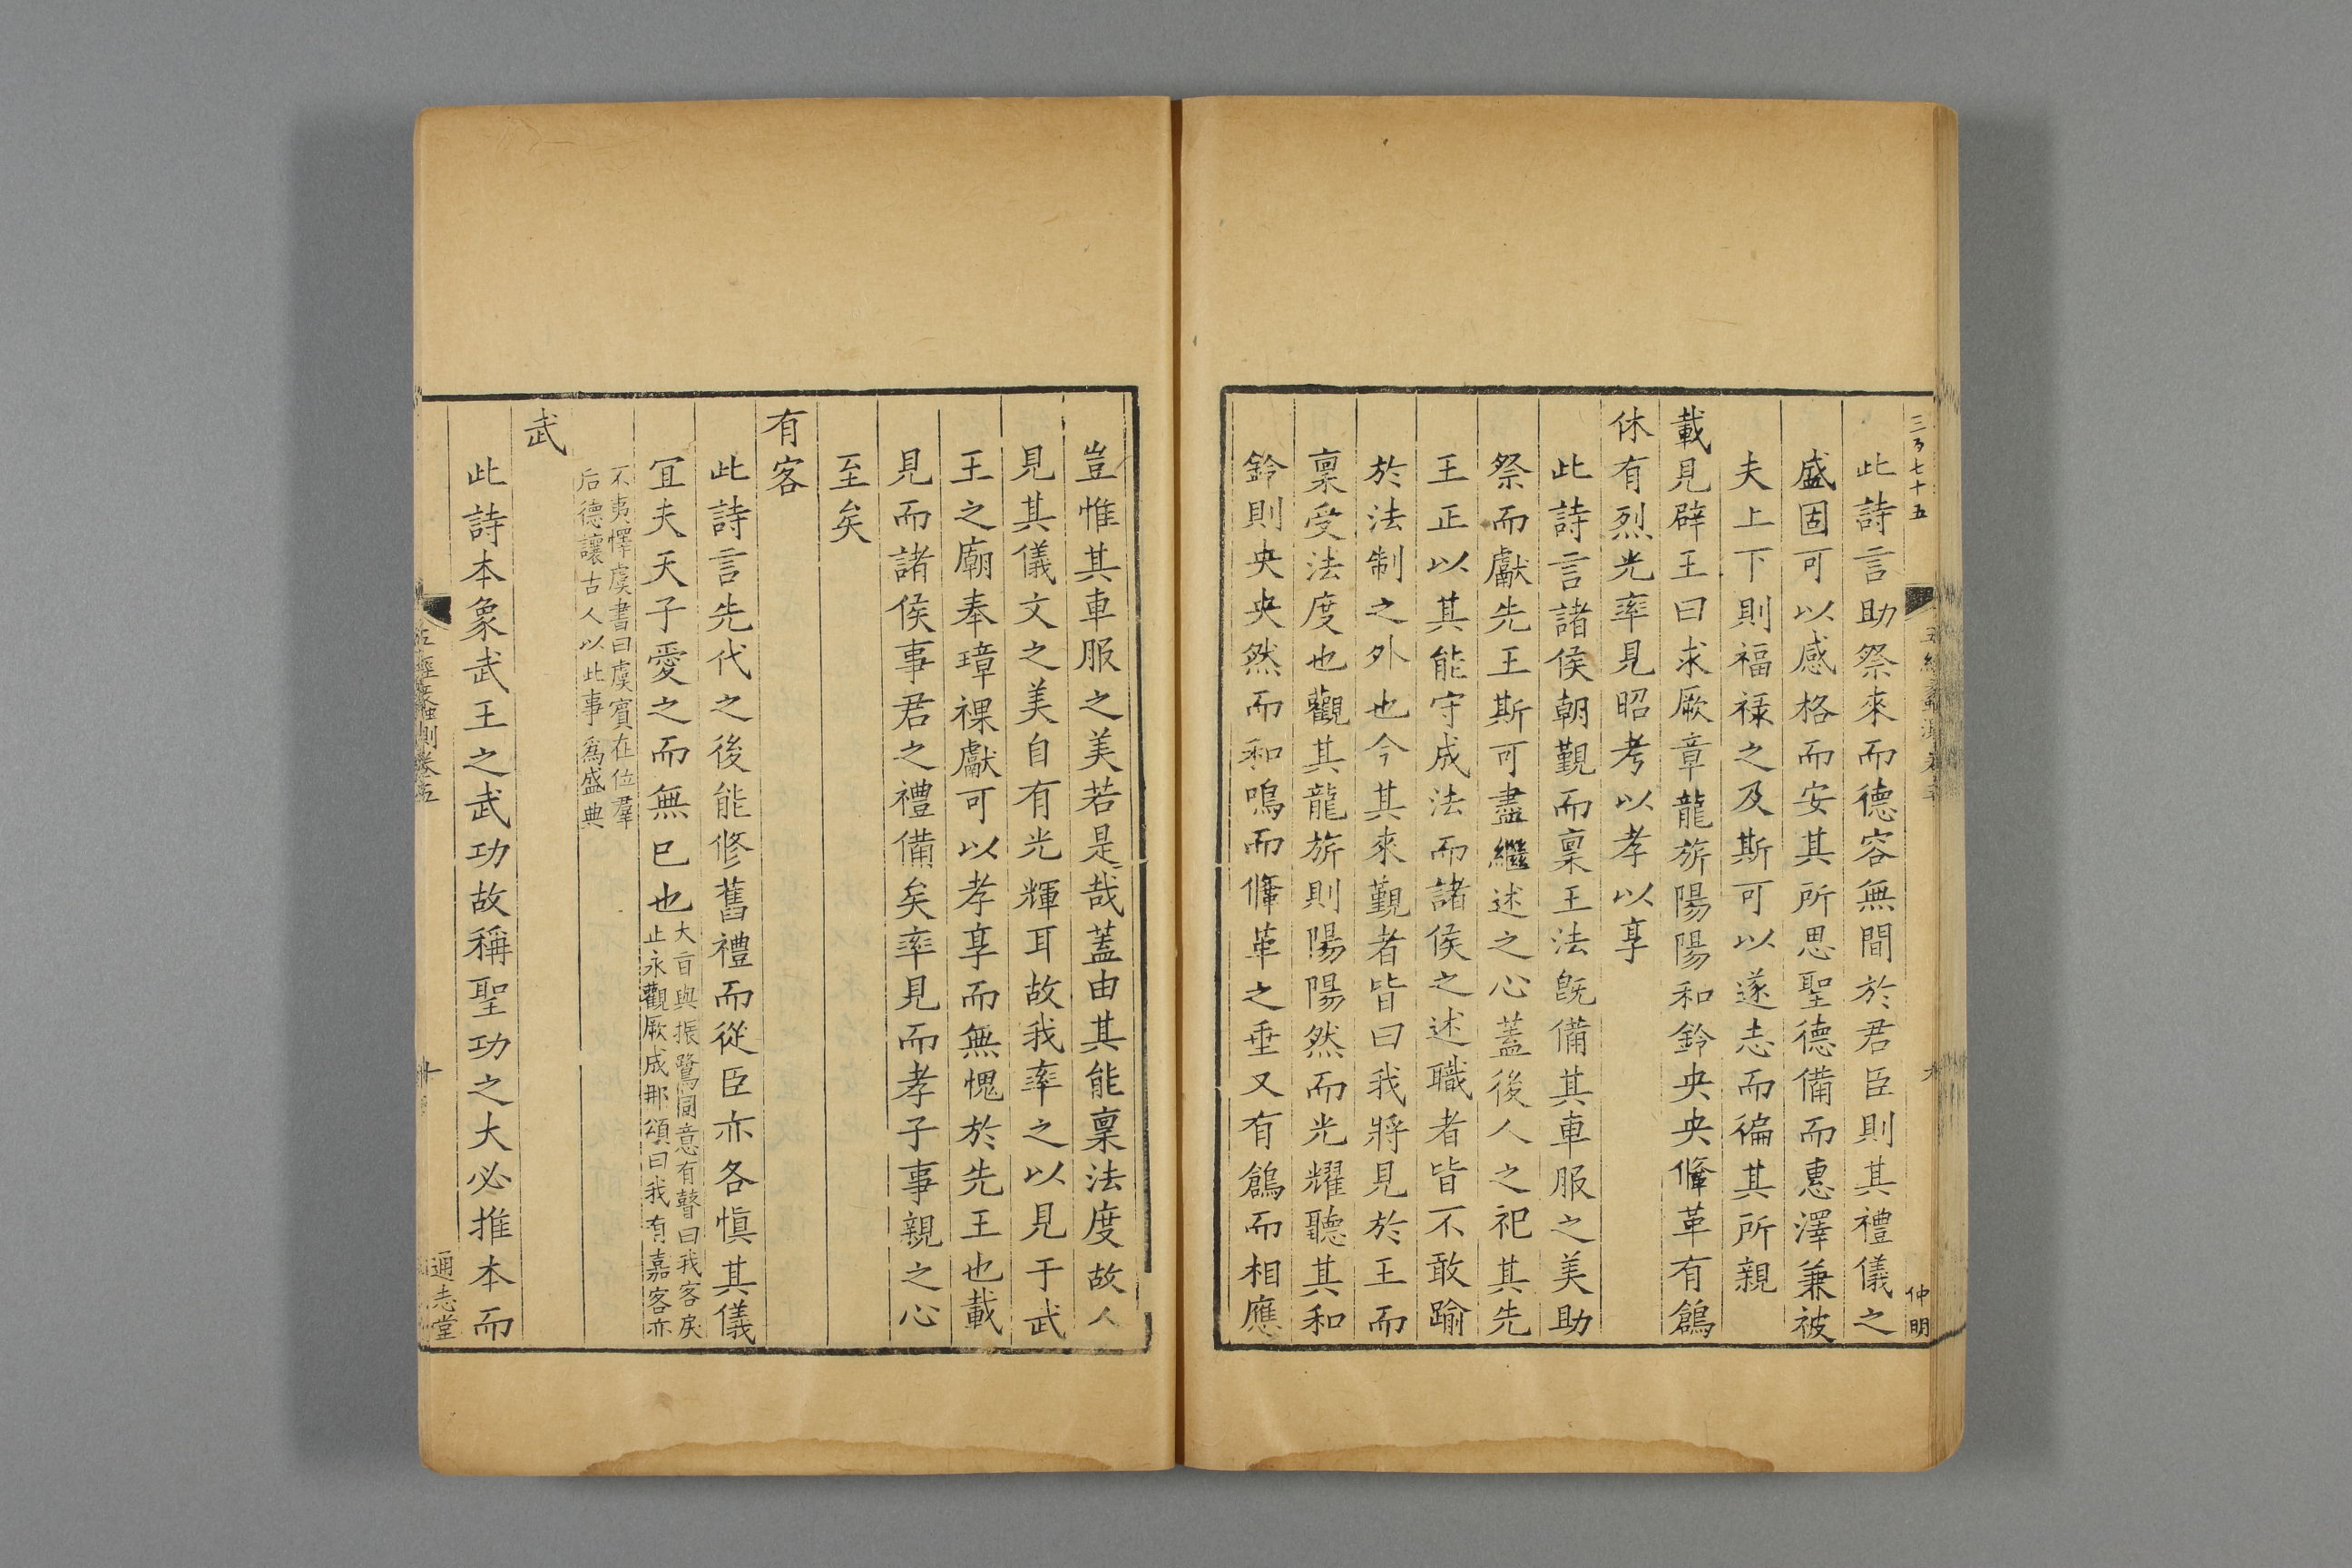 三百七十五
仲明
此詩言助祭來而德容無間於君臣則其禮儀之
盛固可以感格而安其所思聖德備而惠澤兼被
夫上下則福祿之及斯可以遂志而徧其所親
載見辟王曰求厥章龍旂陽陽和鈴央央鞗革有鶬
休有烈光率見昭考以孝以享
此詩言諸侯朝覲而稟王法旣備其車服之美助
祭而獻先王斯可盡繼述之心蓋後人之祀其先
王正以其能守成法而諸侯之述職者皆不敢踰
於法制之外也今其來覲者皆曰我將見於王而
稟受法度也觀其龍旂則陽陽然而光耀聽其和
鈴則央央然而和鳴而鞗革之垂又有鶬而相應
豈惟其車服之美若是哉蓋由其能稟法度故人
見其儀文之美自有光輝耳故我率之以見于武
王之廟奉璋祼獻可以孝享而無愧於先王也載
見而諸侯事君之禮備矣率見而孝子事親之心
至矣
有客
此詩言先代之後能修舊禮而從臣亦各愼其儀
冝夫天子愛之而無已也
大㫖與振鷺同意有瞽曰我客戾
止永觀厥成那頌曰我有嘉客亦
不夷懌虞書曰虞賓在位羣
后德讓古人以此事爲盛典
武
此詩本象武王之武功故稱聖功之大必推本而
五經蠡測卷五
通志堂